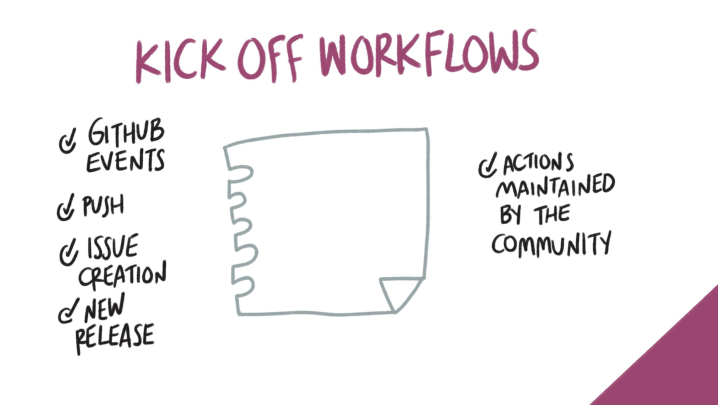 KICK OFF WORKFLOWS
GITHUB
EVENTS
PUSH
ISSUE
CREATION
NEW
RELEASE
ACTIONS
MAINTAINED
BY THE
COMMUNITY